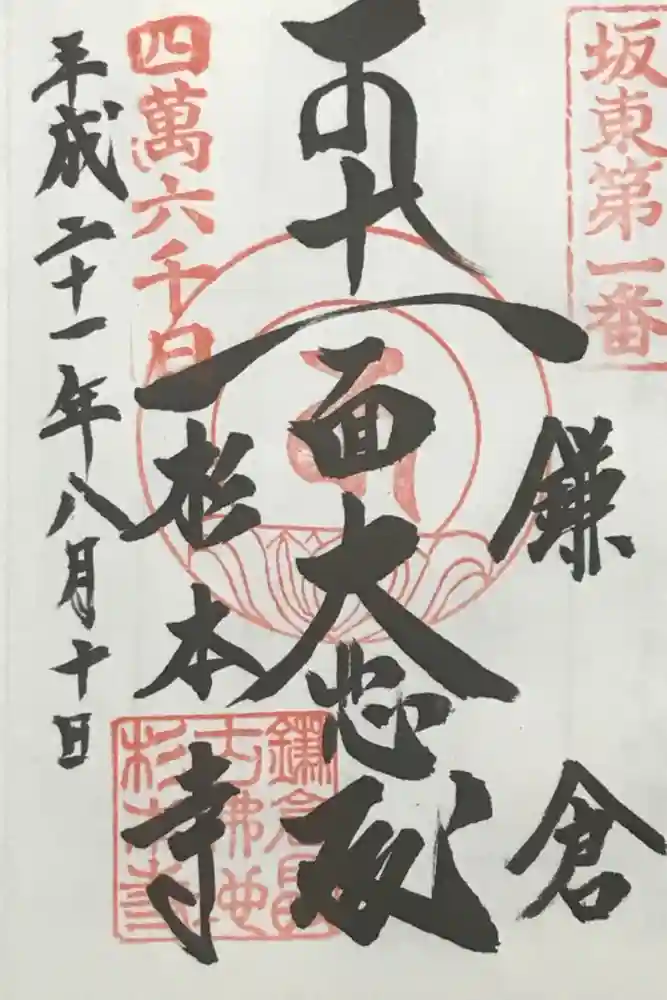 坂東第一番
鎌倉
十一面大悲殿
杉本寺
四萬六千日
平成二十一年八月十日
鎌倉最
古佛地
杉本寺